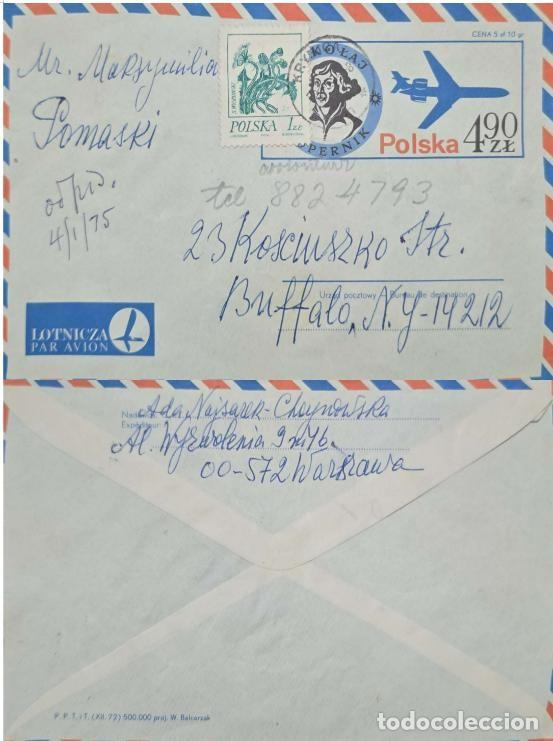 CENA 5 zł 10 gr
Mr. Maksymilia
Pomaski
odpis.
4/I/75
POLSKA 1 ZŁ
MIKOŁAJ
KOPERNIK
Polska 4.90 ZŁ
tel 882 4793
23 Kościuszko Str.
Urząd pocztowy - Bureau de destination
Buffalo, N.Y-14212
LOTNICZA
PAR AVION
Ada Najsarek-Choynowska
Expéditeur:
Al. Wyzwolenia 9 m
00-572 Warszawa
P. P. T. i T. (XII. 72) 500.000 proj. W. Balcerzak
todocoleccion